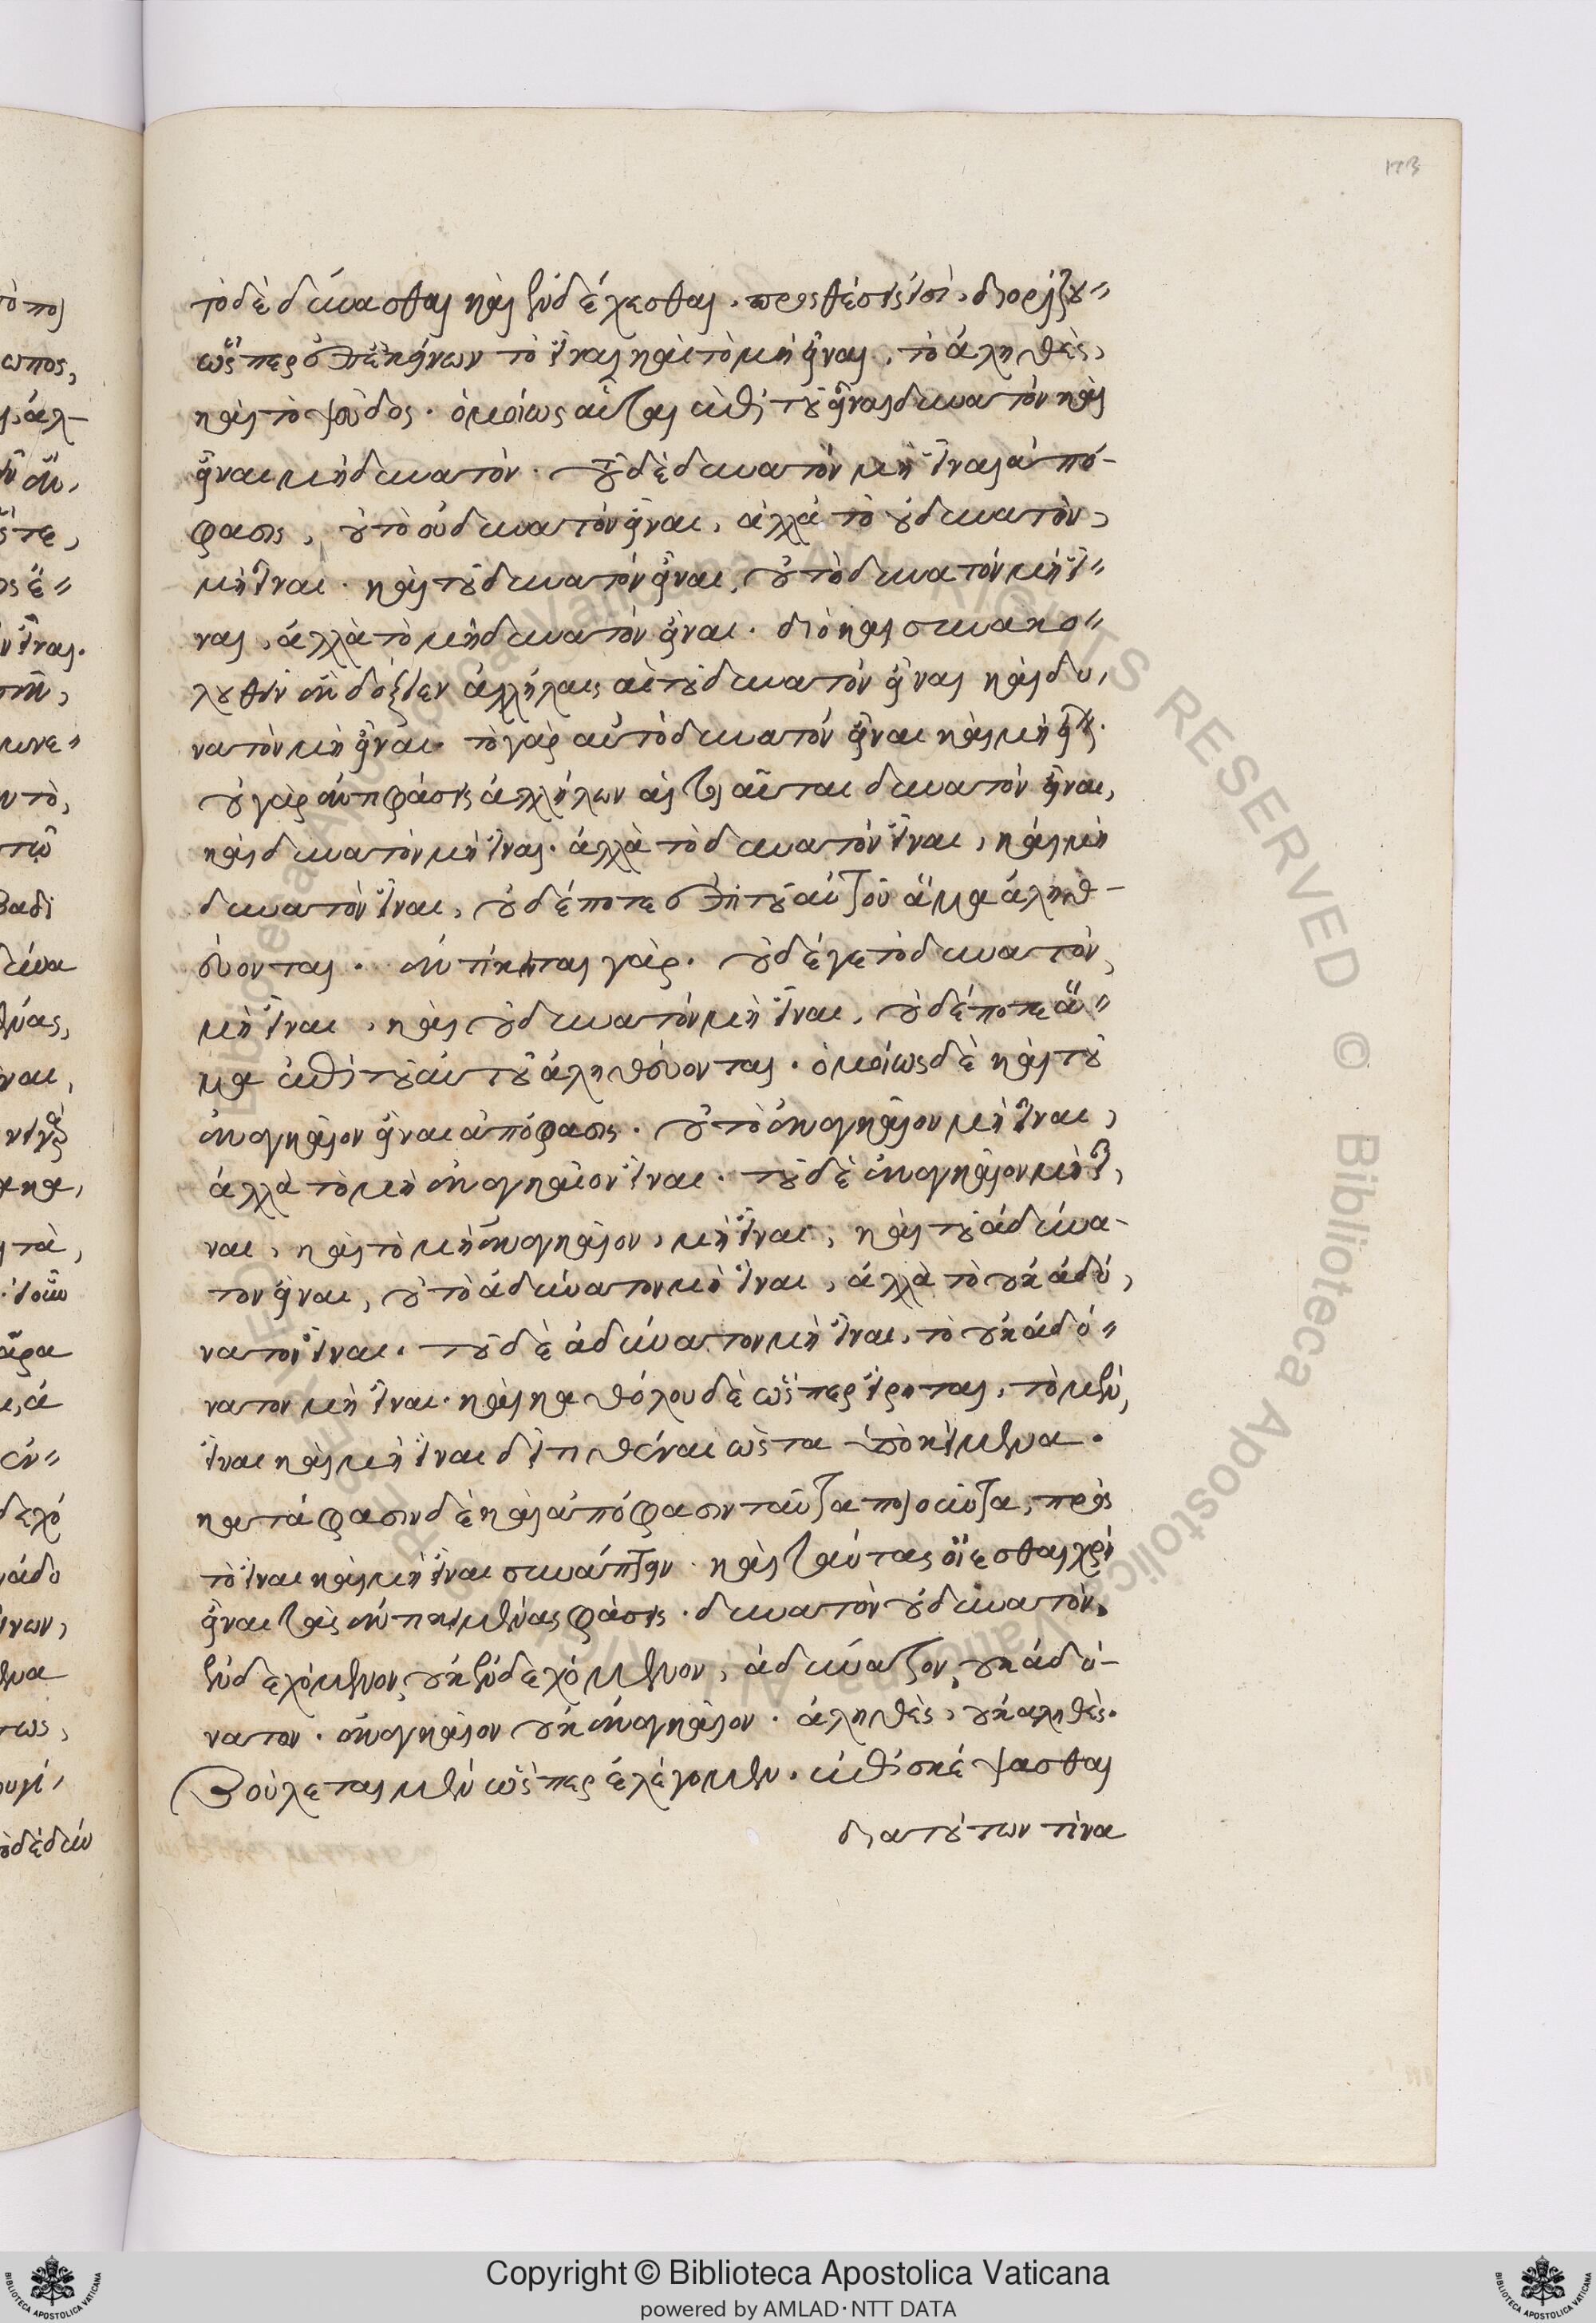 τὸ δὲ δύνασθαι καὶ ἐνδέχεσθαι. προσθέσεις εἰσὶ, διορίζου=
ὥσπερ ἐπ' ἐκείνων τὸ εἶναι καὶ τὸ μὴ εἶναι, τὸ ἀληθὲς,
καὶ τὸ ψεῦδος. ὁμοίως αὗται ἐπὶ τοῦ εἶναι δυνατὸν καὶ
εἶναι μὴ δυνατὸν. τοῦ δὲ δυνατὸν μὴ εἶναι ἀπό-
φασις, οὐ τὸ οὐ δυνατὸν εἶναι, ἀλλὰ τὸ οὐ δυνατὸν,
μὴ εἶναι. καὶ τοῦ δυνατὸν εἶναι, οὐ τὸ δυνατὸν μὴ εἶ=
ναι, ἀλλὰ τὸ μὴ δυνατὸν εἶναι. διὸ καὶ συνακο=
λουθεῖν ἂν δόξειεν ἀλλήλαις αἱ τοῦ δυνατὸν εἶναι καὶ δυ,
νατὸν μὴ εἶναι. τὸ γὰρ αὐτὸ δυνατὸν εἶναι καὶ μὴ εἶναι.
οὐ γὰρ ἀντιφάσεις ἀλλήλων αἱ τοιαῦται δυνατὸν εἶναι,
καὶ δυνατὸν μὴ εἶναι. ἀλλὰ τὸ δυνατὸν εἶναι, καὶ μὴ
δυνατὸν εἶναι, οὐδέποτε ἐπὶ τοῦ αὐτοῦ ἅμα ἀληθ-
εύονται. ἀντίκεινται γὰρ. οὐδέ γε τὸ δυνατὸν,
μὴ εἶναι, καὶ οὐ δυνατὸν μὴ εἶναι, οὐδέποτε ἅ=
μα ἐπὶ τοῦ αὐτοῦ ἀληθεύονται. ὁμοίως δὲ καὶ τοῦ
ἀναγκαῖον εἶναι ἀπόφασις. οὐ τὸ ἀναγκαῖον μὴ εἶναι,
ἀλλὰ τὸ μὴ ἀναγκαῖον εἶναι. τοῦ δὲ ἀναγκαῖον μὴ εἶ,
ναι, καὶ τὸ μὴ ἀναγκαῖον, μὴ εἶναι, καὶ τοῦ ἀδύνα-
τον εἶναι, οὐ τὸ ἀδύνατον μὴ εἶναι, ἀλλὰ τὸ οὐκ ἀδύ,
νατον εἶναι. τοῦ δὲ ἀδύνατον μὴ εἶναι, τὸ οὐκ ἀδύ=
νατον μὴ εἶναι. καὶ καθόλου δὲ ὥσπερ εἴρηται, τὸ μὲν,
εἶναι καὶ μὴ εἶναι δεῖ τιθέναι ὡς τὰ ὑποκείμενα.
κατάφασιν δὲ καὶ ἀπόφασιν ταῦτα ποιοῦντα, πρὸς
τὸ εἶναι καὶ μὴ εἶναι συνάπτειν. καὶ ταύτας οἴεσθαι χρὴ
εἶναι τὰς ἀντικειμένας φάσεις. δυνατὸν οὐ δυνατὸν.
ἐνδεχόμενον, οὐκ ἐνδεχόμενον, ἀδύνατον, οὐκ ἀδύ-
νατον. ἀναγκαῖον οὐκ ἀναγκαῖον. ἀληθὲς, οὐκ ἀληθὲς.
Βούλεται μὲν ὥσπερ ἐλέγομεν. ἐπισκέψασθαι
διὰ τούτων τίνα
Copyright © Biblioteca Apostolica Vaticana
powered by AMLAD·NTT DATA